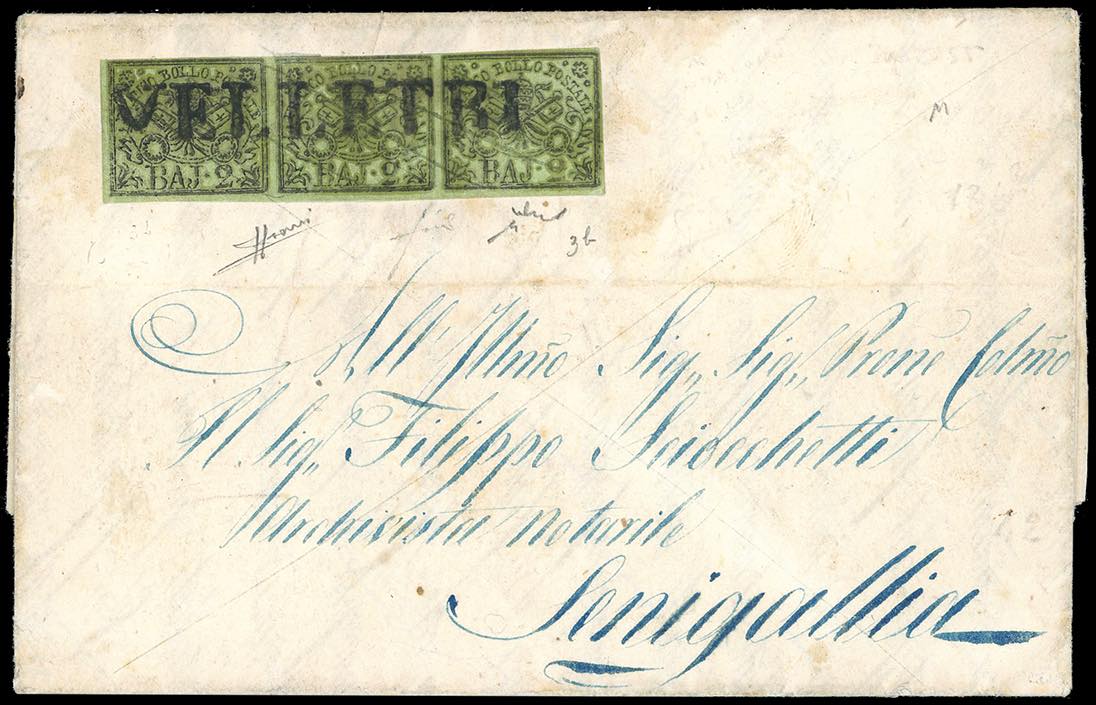 FRANCO BOLLO POSTALE FRANCO BOLLO POSTALE FRANCO BOLLO POSTALE
VELLETRI
BAJ. 2 BAJ. 2 BAJ. 2
3b
All' Illmo Sig., Sig., Prone Colmo
Il Sig., Filippo Sciocchetti
Archivista notarile
Senigallia